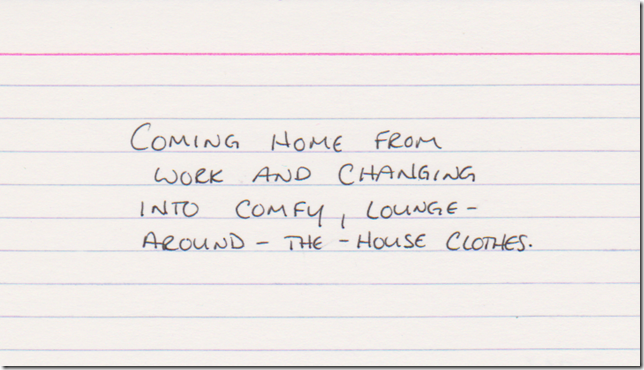 COMING HOME FROM
WORK AND CHANGING
INTO COMFY, LOUNGE-
AROUND-THE-HOUSE CLOTHES.